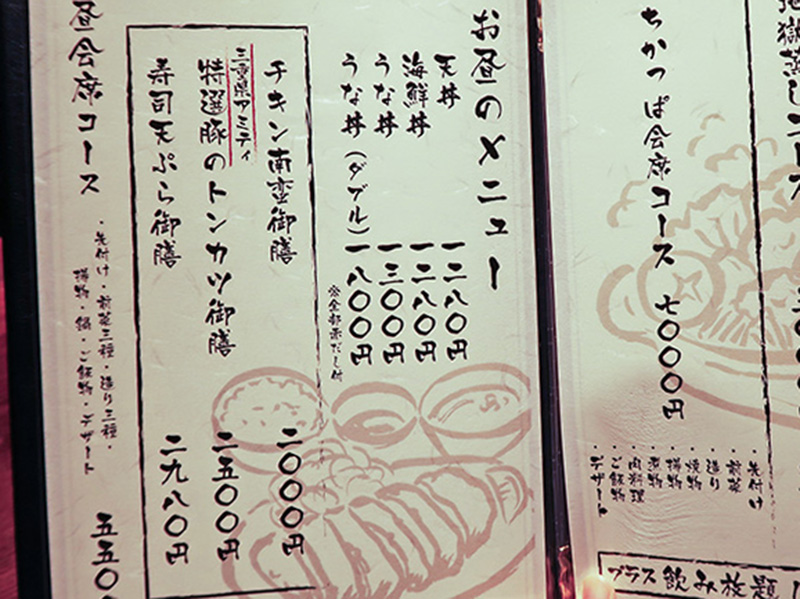 地獄蒸しコース
ちかっぱ会席コース 七〇〇〇円
・先付け
・前菜
・造り
・焼物
・揚物
・煮物
・肉料理
・ご飯物
・デザート
プラス飲み放題
お昼のメニュー
天丼 一二八〇円
海鮮丼 一二八〇円
うな丼 一三〇〇円
うな丼(ダブル) 一八〇〇円
※全部赤だし付
チキン南蛮御膳 二〇〇〇円
三重県アミティ
特選豚のトンカツ御膳 二五〇〇円
寿司天ぷら御膳 二九八〇円
昼会席コース 五五〇
・先付け・前菜三種・造り三種・
揚物・鍋・ご飯物・デザート